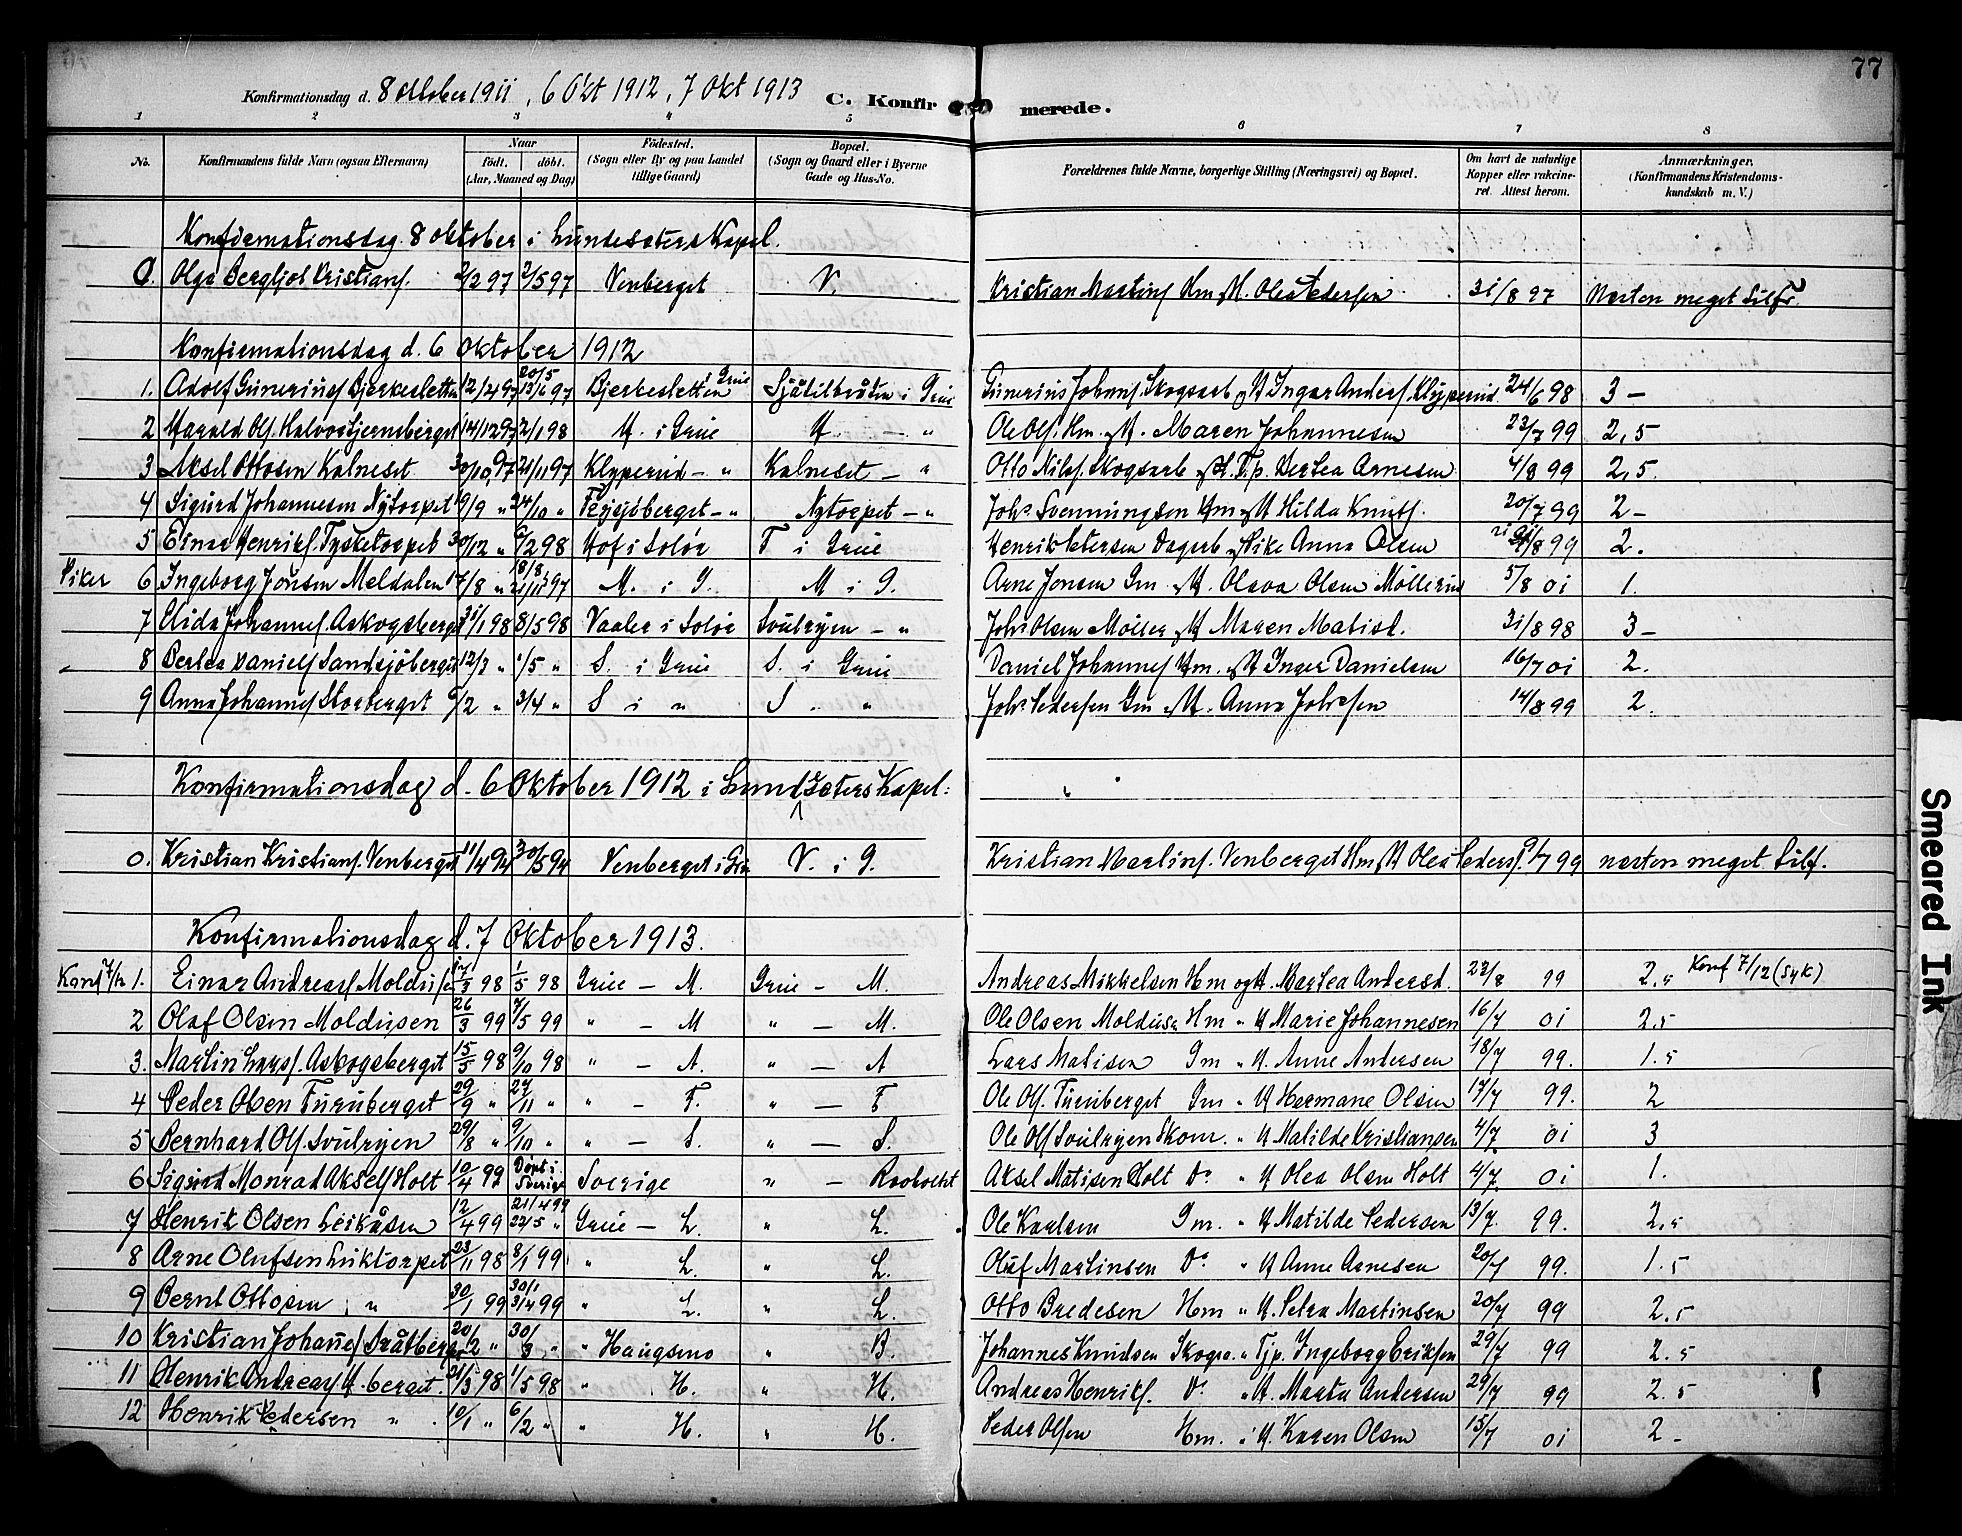 77
Konfirmationsdag d. 8 oktober 1911, 6 Okt 1912, 7 Okt 1913 C. Konfirmerede.
1 2 3 4 5 6 7 8
No. Konfirmandens fulde Navn (ogsaa Efternavn) Naar født. døbt. (Aar, Maaned og Dag) Fødested. (Sogn eller By og paa Landet tillige Gaard) Bopæl. (Sogn og Gaard eller i Byerne Gade og Hus-No. Forældrenes fulde Navne, borgerlige Stilling (Næringsvei) og Bopæl. Om havt de naturlige Kopper eller vakcineret. Attest herom. Anmærkninger. (Konfirmandens Kristendomskundskab m. V.)
Konfirmationsdag 8 oktober i Lundesæters Kapel.
Olga Bergljot Kristians. 2/2 97 2/5 97 Venberget V. Kristian Martins. Hm. H. Olea Pedersen 31/8 97 Næsten meget tilfr.
Konfirmationsdag d. 6 oktober 1912
1. Adolf Gunerius Bjerkesletten 12/2 97 20/5 13/6 97 Bjerkesletten i Grue i Grue Gunerius Johans. Skogsarb. H. Ingar Anders. Klypperud 24/6 98 3 –
2 Harald Ols. Halvorstjernsberget 14/12 97 2/1 98 H. i Grue H – „ Ole Ols. Hm. H. Maren Johannesen 23/7 99 2,5
3 Aksel Ottosen Kalneset 30/10 97 21/11 97 Klypperud – „ Kalneset – „ Otto Nils. Skogsarb. Tjp. Bertea Arnesen 4/8 99 2,5.
4 Sigurd Johannesen Nytorpet 19/9 „ 24/10 „ Fejsjøberget – „ Nytorpet – „ Johs Svenningsen Hm. H Hilda Knuts. 20/7 99 2 –
5 Einar Henriks. Tysketorpet 30/12 „ 6/2 98 Hof i Solør T i Grue Henrik Petersen Dagarb. Pike Anna Olsen 21/8 99 2.
Piker 6 Ingeborg Jonsen Meldalen 17/8 „ 18/8 21/11 97 M. i G. M i G. Arne Jonsen Gm. H. Olava Olsen Möllerud 5/8 01 1.
7 Aida Johannes. Askogsberget 31/1 98 8/5 98 Vaaler i Solør Svulryen – „ Johs Olsen Møller H Maren Matisd. 31/8 98 3 –
8 Bertea Daniels. Sandsjøberget 12/3 „ 1/5 „ S. i Grue S. i Grue Daniel Johannes Hm. H Inger Danielsen 16/7 01 2.
9 Anna Johannes Storberget 6/2 „ 3/4 „ S i „ S . „ Johs Pedersen Gm H. Anna Johssen 14/8 99 2.
Konfirmationsdag d. 6 Oktober 1912 i Lundesæters Kapel:
0. Kristian Kristians. Venberget 11/4 94 30/5 94 Venberget i Gru V. i G. Kristian Martins. Venberget Hm H Olea Peders. 9/7 99 næsten meget tilf.
Konfirmationsdag d. 7 Oktober 1913.
Konf 7/12 1. Einar Andreas Moldusen 17/3 98 1/5 98 Grue – M. Grue – M. Andreas Mikkelsen Hm og H. Martea Andersd. 23/8 99 2.5 Konf 7/12 (Syk)
2 Olaf Olsen Moldusen 26/3 99 7/5 99 „ – M „ – M. Ole Olsen Moldusen Hm „ H Marie Johannesen 16/7 01 2.5
3. Martin Lars. Askogsberget 15/5 98 9/10 98 „ – A. „ – A Lars Matisen Gm „ H Anne Andersen 18/7 99. 1.5
4 Peder Olsen Furuberget 29/9 „ 27/11 „ „ – F. „ – F Ole Ols. Furuberget Gm „ H Hermane Olsen 17/7 99. 2
5 Bernhard Ols. Svulryen 29/8 „ 9/10 „ „ – S. „ – S. Ole Ols Svulryen Skom. „ H Matilde Kristiansen 4/7 01 3
6 Sigurd Monrad Aksels Holt 10/4 99 Døpt i Sverige Sverige „ – Aksel Matisen Holt Do „ H Olea Olsen Holt 4/7. 01 1.
7 Henrik Olsen Leikåsen 12/4 99 21/4 99 22/5 „ Grue – L. „ L. Ole Karlsen Gm. „ H Matilde Pedersen 13/7. 99. 2.5
8 Arne Olufsen Luktorpet 23/11 98 8/1 99 „ L. „ L. Oluf Martinsen Do „ H Anne Arnesen 20/7 99. 1.5
9 Bernt Ottosen „ 30/1 99 30/1 3/4 99 „ L. „ L. Otto Bredesen Hm „ H. Petra Martinsen 20/7 99 2.5
10 Kristian Johannes Bråtberget 20/2 „ 30/3 „ „ Haugsmo „ B. Johannes Knudsen Skogsa. „ Tjp. Ingeborg Eriksen 29/7 99 2.5
11 Henrik Andreas H.berget. 21/3 98 1/5 98 „ H. „ H. Andreas Henriks. Do „ H. Marta Andersen 29/7 99 2.5
12 Henrik Pedersen „ 10/1 „ 6/2 „ „ H. „ H. Peder Olsen Hm. „ H. Karen Olsen 15/7 01 2 –
Smeared Ink